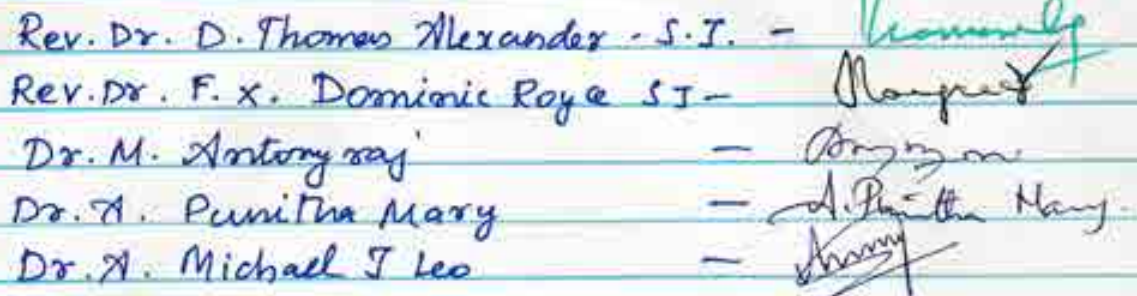 Rev. Dr. D. Thomas Alexander - S.J. -
Rev. Dr. F. X. Dominic Royce SJ -
Dr. M. Antony raj -
Dr. A. Punitha Mary - A. Punitha Mary.
Dr. A. Michael J Leo -